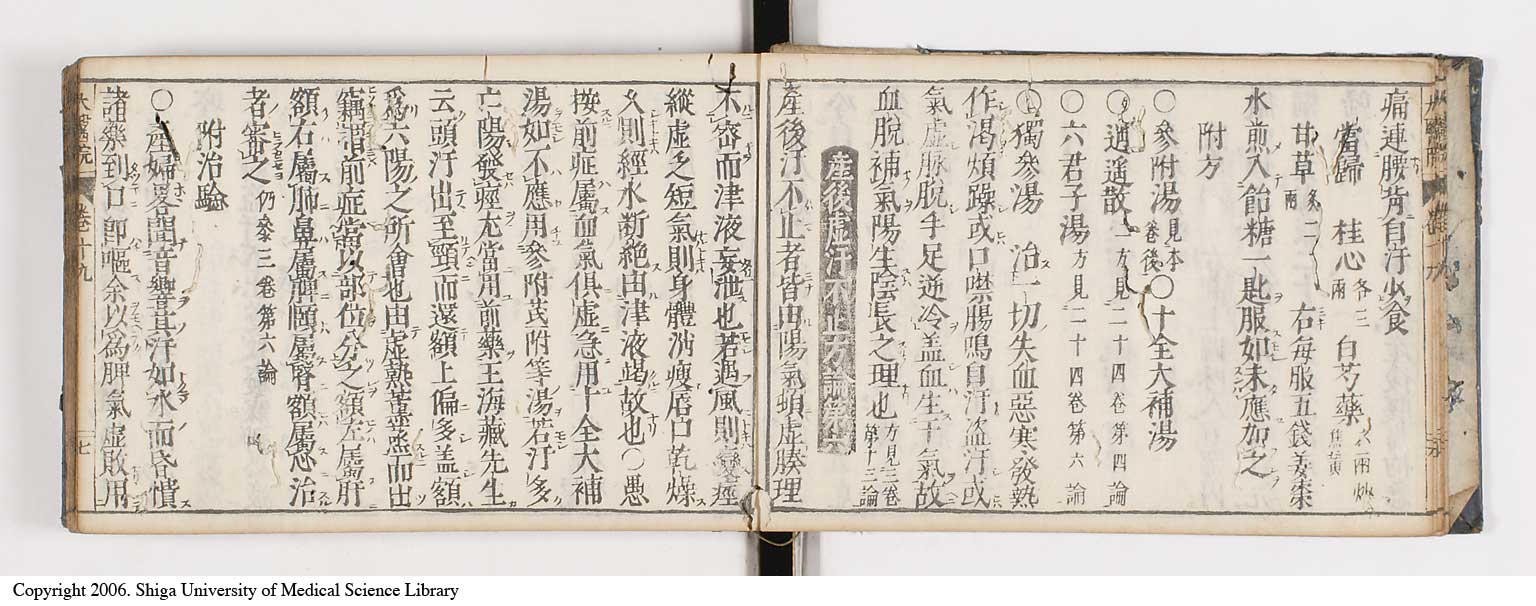 痛連腰背自汗少食
當歸 桂心各三兩 白芍藥六兩炒焦黃
甘草炙二兩 右每服五錢姜棗
水煎入飴糖一匙服如未應加之
附方
○參附湯見本卷後○十全大補湯
○逍遥散方見二十四卷第四論
○六君子湯方見二十四卷第六論
○獨參湯 治一切失血惡寒發熱
作渴煩躁或口噤腸鳴自汗盜汗或
氣虛脉脫手足逆冷盖血生于氣故
血脫補氣陽生陰長之理也方見三卷第十三論
產後虛汗不止方論
產後汗不止者皆由陽氣頓虛腠理
不密而津液妄泄也若遇風則變痙
縱虛乏短氣則身體消瘦唇口乾燥
久則經水斷絕由津液竭故也○愚
按前症屬血氣俱虛急用十全大補
湯如不應用參附芪附等湯若汗多
亡陽發痙尤當用前藥王海藏先生
云頭汗出至頸而還額上偏多盖額
爲六陽之所會也由虛熱薰蒸而出
竊謂前症當以部位分之額左屬肝
額右屬肺鼻屬脾頤屬腎額屬心治
者審之仍參三卷第六論
附治驗
○產婦畧聞音響其汗如水而昏憒
諸藥到口即嘔余以為脾氣虛敗用
卷十九
七
Copyright 2006. Shiga University of Medical Science Library